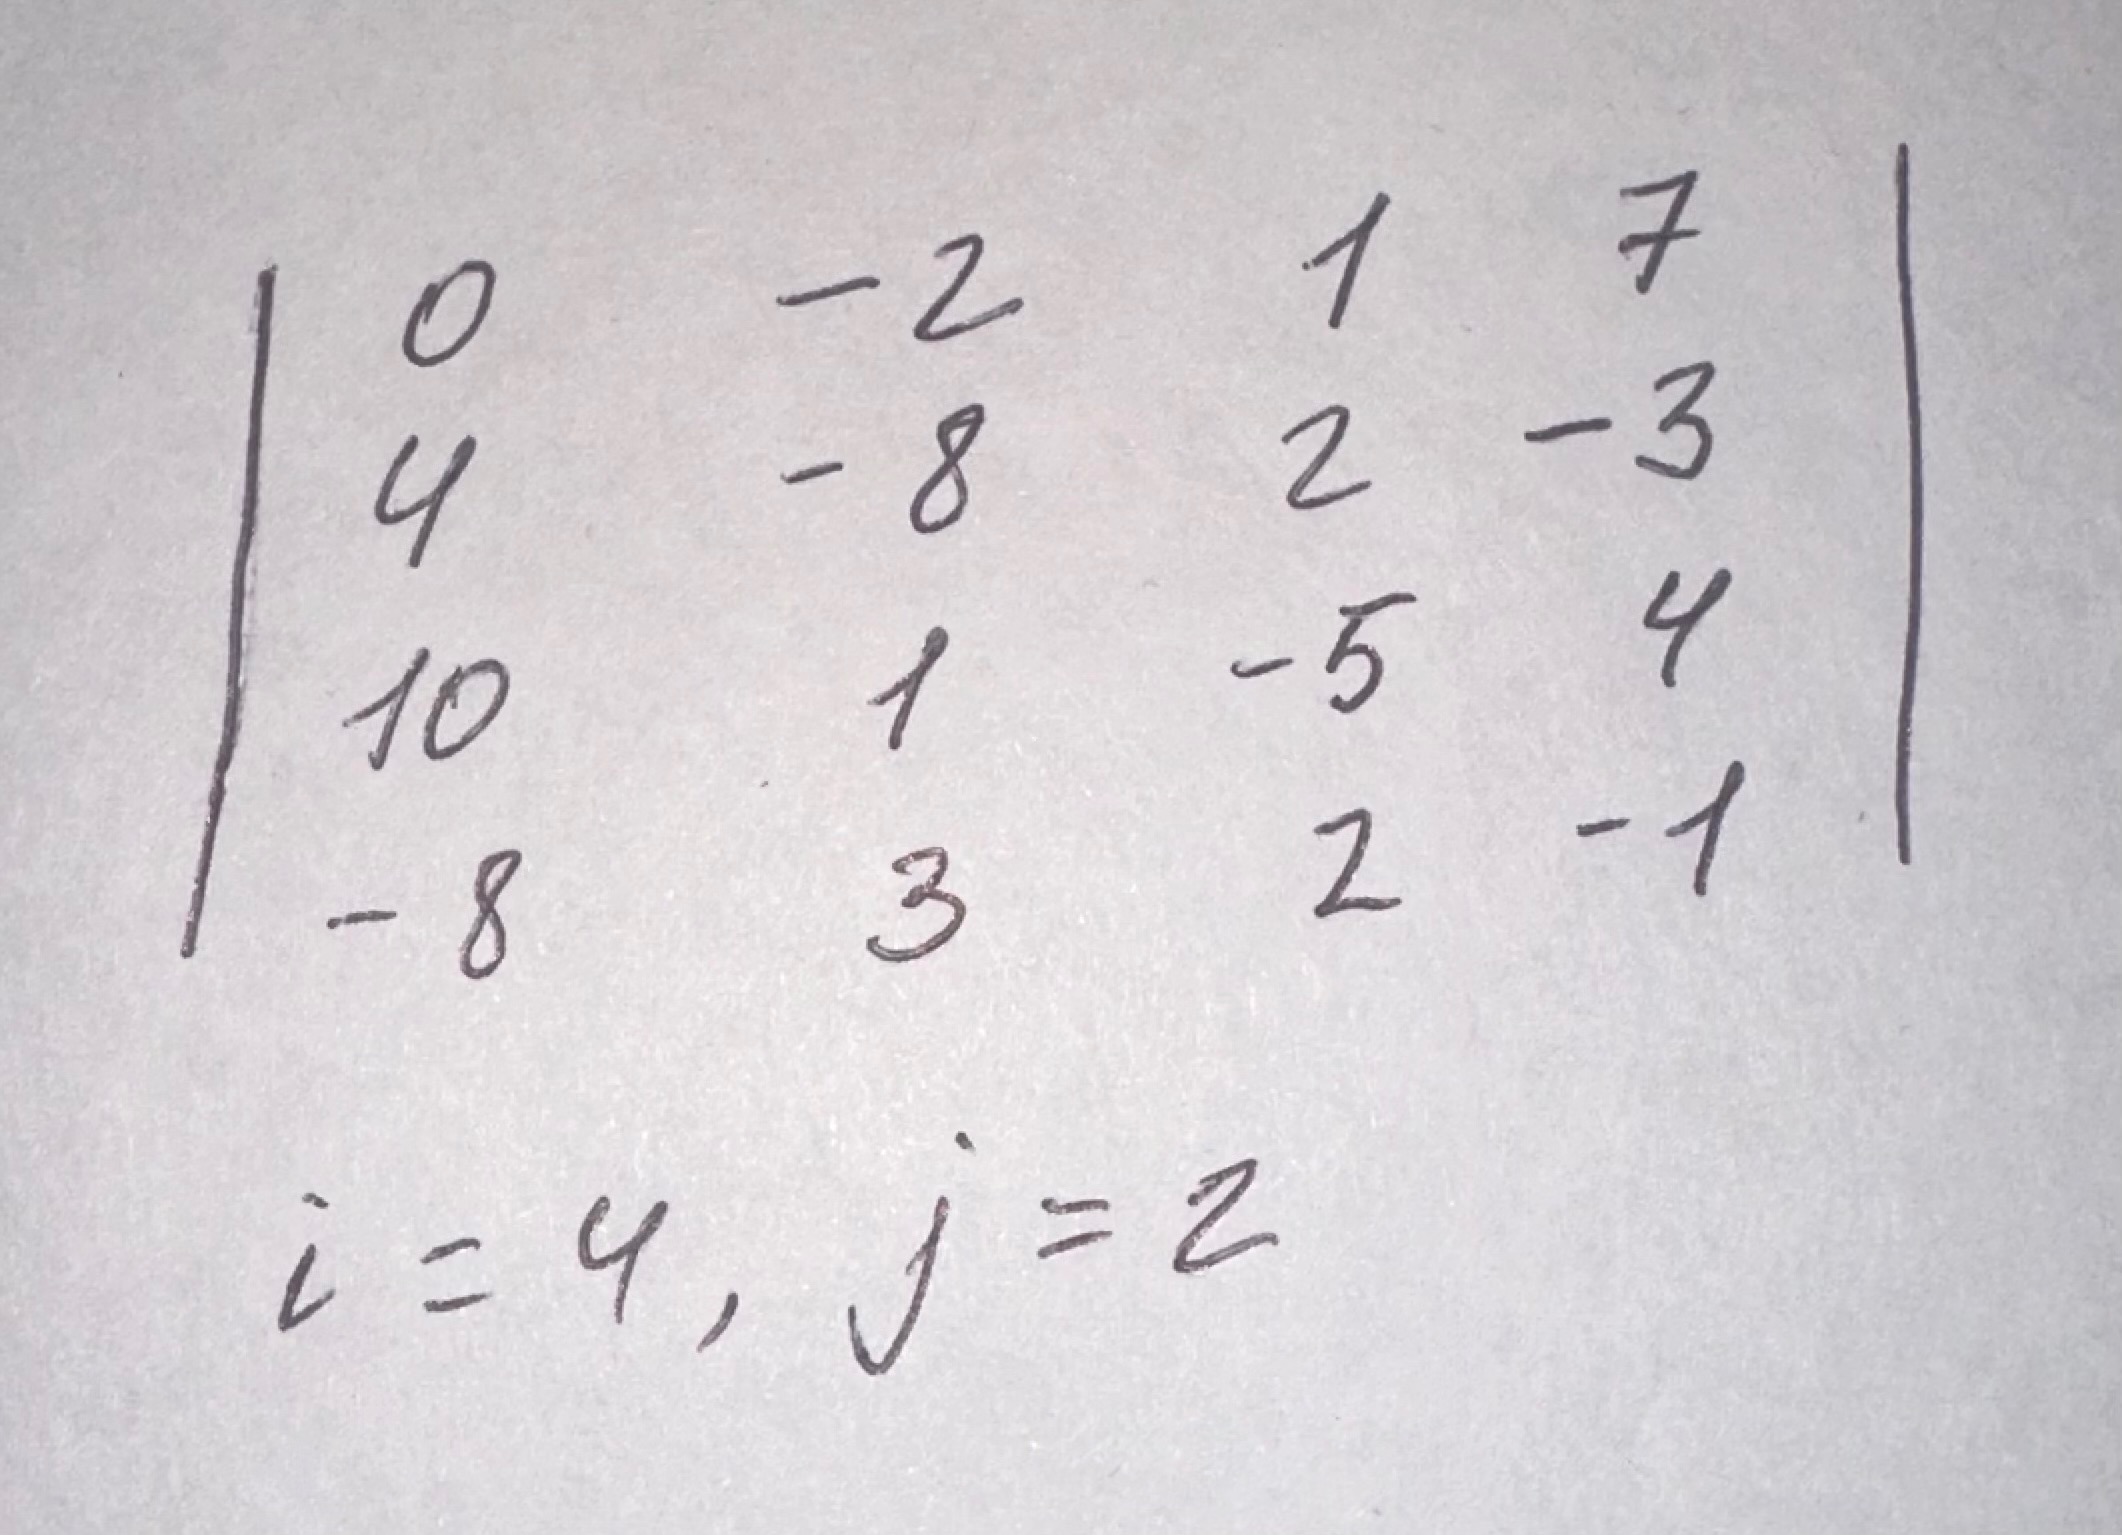 0 -2 1 7
4 -8 2 -3
10 1 -5 4
-8 3 2 -1
i = 4, j = 2